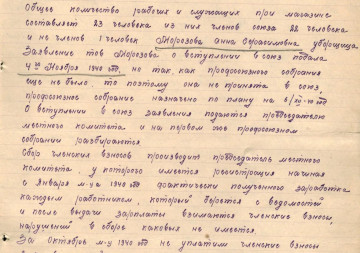 Общее количество рабочих и служащих при магазине
составляет 23 человека из них членов союза 22 человека
и не членов 1 человек Морозова Анна Герасимовна уборщица
Заявление тов Морозова о вступлении в союз подала
4го Ноября 1940 год, но так как профсоюзного собрания
еще не было то поэтому она не принята в союз,
профсоюзное собрание назначено по плану на
О вступлении в союз заявления подаются председателю
местного комитета и на первом же профсоюзном
собрании разбираются
Сбор членских взносов производит председатель местного
комитета, у которого имеется регистрация начиная
с Января м-ца 1940 год фактически полученного заработка
каждым работником, который берется с ведомости
и после выдачи зарплаты взимаются членские взносы,
нарушений в сборе каковых не имеется.
За Октябрь м-ц 1940 год не уплатили членские взносы